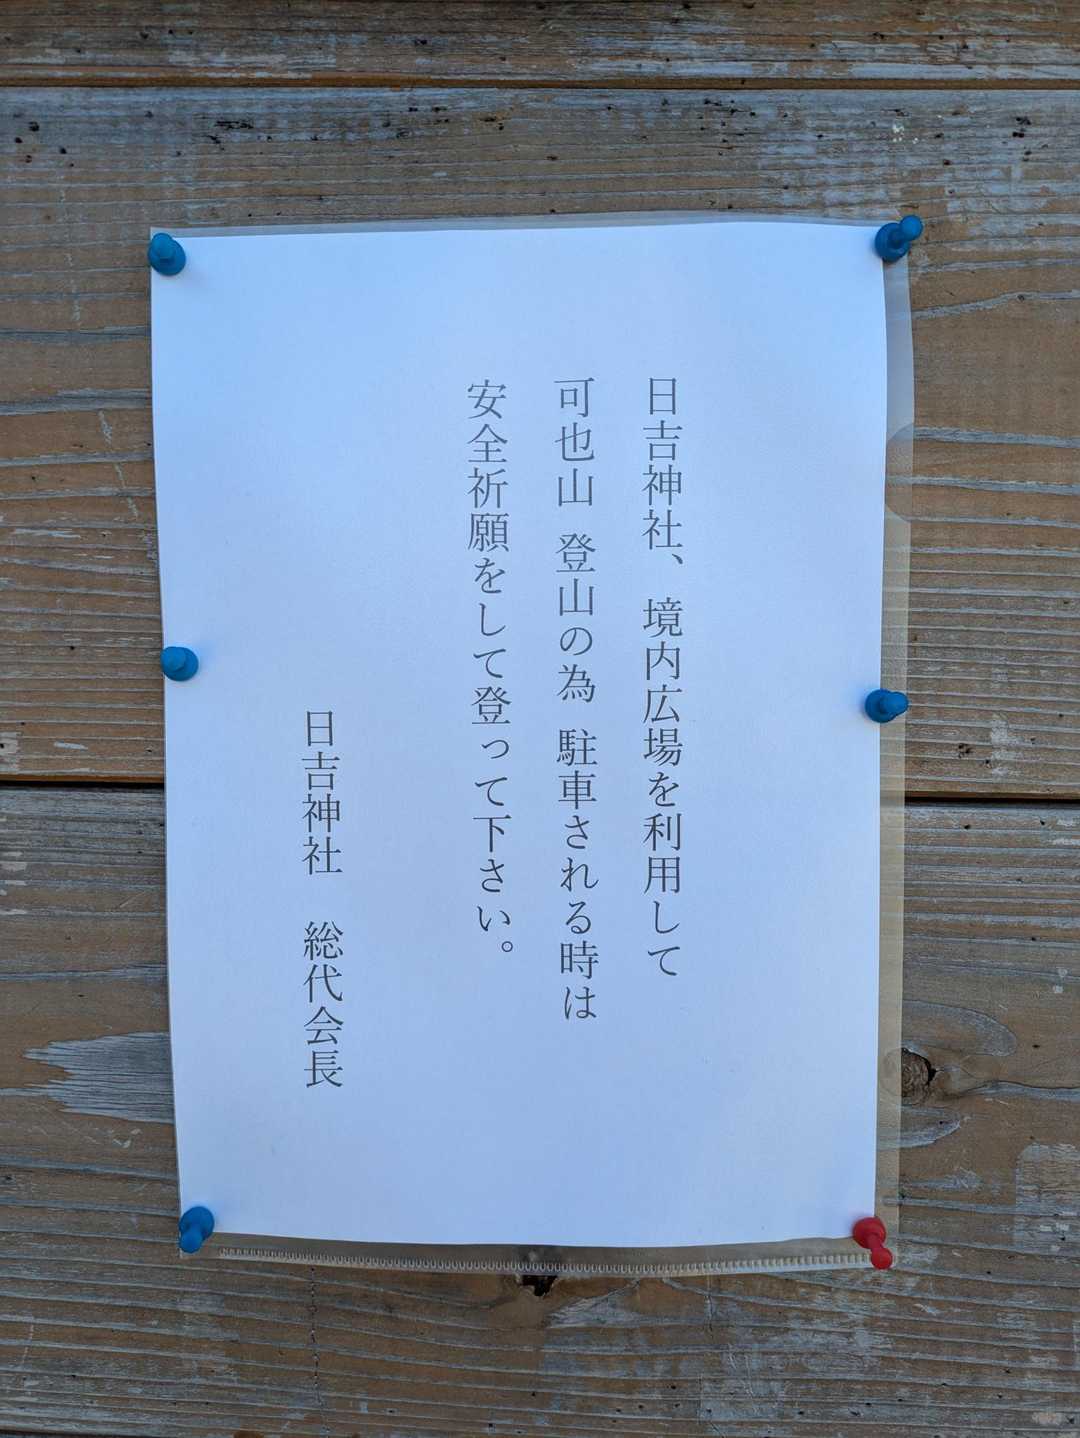 日吉神社、境内広場を利用して
可也山 登山の為 駐車される時は
安全祈願をして登って下さい。
日吉神社　総代会長